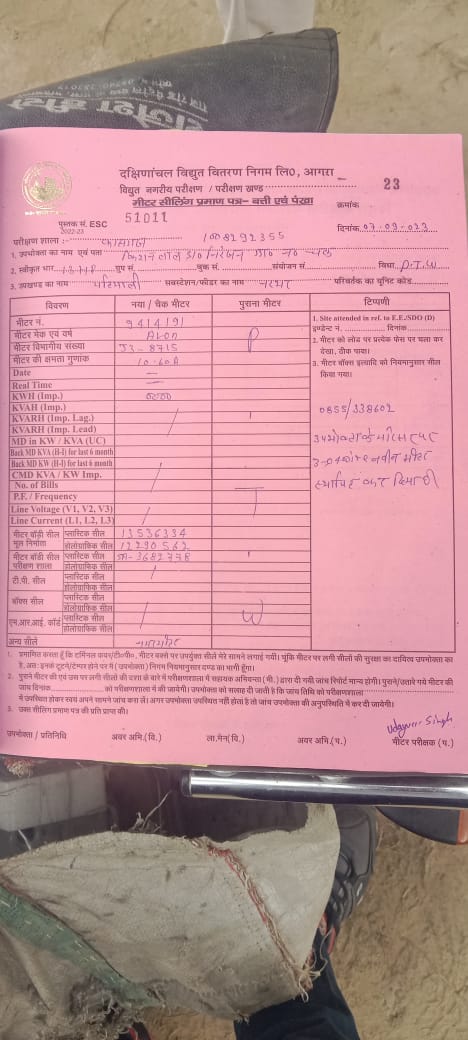 दक्षिणांचल विद्युत वितरण निगम लि0, आगरा
विद्युत नगरीय परीक्षण / परीक्षण खण्ड
23
मीटर सीलिंग प्रमाण पत्र– बत्ती एवं पंखा
क्रमांक
पुस्तक सं. ESC 51011
2022-23
दिनांक. 07-09-023
परीक्षण शाला :- कासगंज 1008292355
1. उपभोक्ता का नाम एवं पता
2. स्वीकृत भार ग्रुप सं. बुक सं. संयोजन सं. विधा P.T.W
3. उपखण्ड का नाम पटियाली सबस्टेशन/फीडर का नाम परिवर्तक का यूनिट कोड
विवरण नया / चैक मीटर पुराना मीटर टिप्पणी
मीटर नं. 941491
मीटर मेक एवं वर्ष AVON
मीटर विभागीय संख्या J3-8715
मीटर की क्षमता गुणाक 10-60A
Date
Real Time
KWH (Imp.)
KVAH (Imp.)
KVARH (Imp. Lag.)
KVARH (Imp. Lead)
MD in KW / KVA (UC)
Back MD KVA (H-I) for last 6 month
Back MD KW (H-I) for last 6 month
CMD KVA / KW Imp.
No. of Bills
P.F. / Frequency
Line Voltage (V1, V2, V3)
Line Current (L1, L2, L3)
P
T
W
1. Site attented in ref. to E.E./SDO (D)
इण्डेन्ट नं. दिनांक
2. मीटर को लोड पर प्रत्येक फेस पर चला कर
देखा, ठीक पाया।
3. मीटर बॉक्स इत्यादि को नियमानुसार सील
किया गया।
0855/338602
उपभोक्ता के परिसर पर
नवीन मीटर
स्थापित कर दिया है
मीटर बॉड़ी सील मूल निर्माता प्लास्टिक सील 13536334
होलोग्राफिक सील 12290562
मीटर बॉडी सील परीक्षण शाला प्लास्टिक सील 3682778
होलोग्राफिक सील
टी.पी. सील प्लास्टिक सील
होलोग्राफिक सील
बॉक्स सील प्लास्टिक सील
होलोग्राफिक सील
एम.आर.आई. कॉर्ड प्लास्टिक सील
होलोग्राफिक सील
अन्य सीले
1. प्रमाणित करता हूँ कि टर्मिनल कवर/टी०पी०, मीटर बक्से पर उपर्युक्त सीलें मेरे सामने लगाई गयी। चूंकि मीटर पर लगी सीलों की सुरक्षा का दायित्व उपभोक्ता का
है, अत: इनके टूटने/टेम्पर होने पर मैं ( उपभोक्ता ) निगम नियमानुसार दण्ड का भागी हूँगा।
2. पुराने मीटर की एवं उस पर लगी सीलों की दशा के बारे में परीक्षणशाला में सहायक अभियन्ता ( मी. ) द्वारा दी गयी जांच रिपोर्ट मान्य होगी। पुराने/उतारे गये मीटर की
जांच दिनांक को परीक्षणशाला में की जायेगी। उपभोक्ता को सलाह दी जाती है कि जांच तिथि को परीक्षणशाला
में उपस्थित होकर स्वयं अपने सामने जांच करा लें। अगर उपभोक्ता उपस्थित नहीं होता है तो जांच उपभोक्ता की अनुपस्थिति में कर दी जायेगी।
3. उक्त सीलिंग प्रमाण पत्र की प्रति प्राप्त की।
Udayveer Singh
उपभोक्ता / प्रतिनिधि अवर अभि.(वि.) ला.मैन(वि.) अवर अभि.(प.) मीटर परीक्षक (प.)